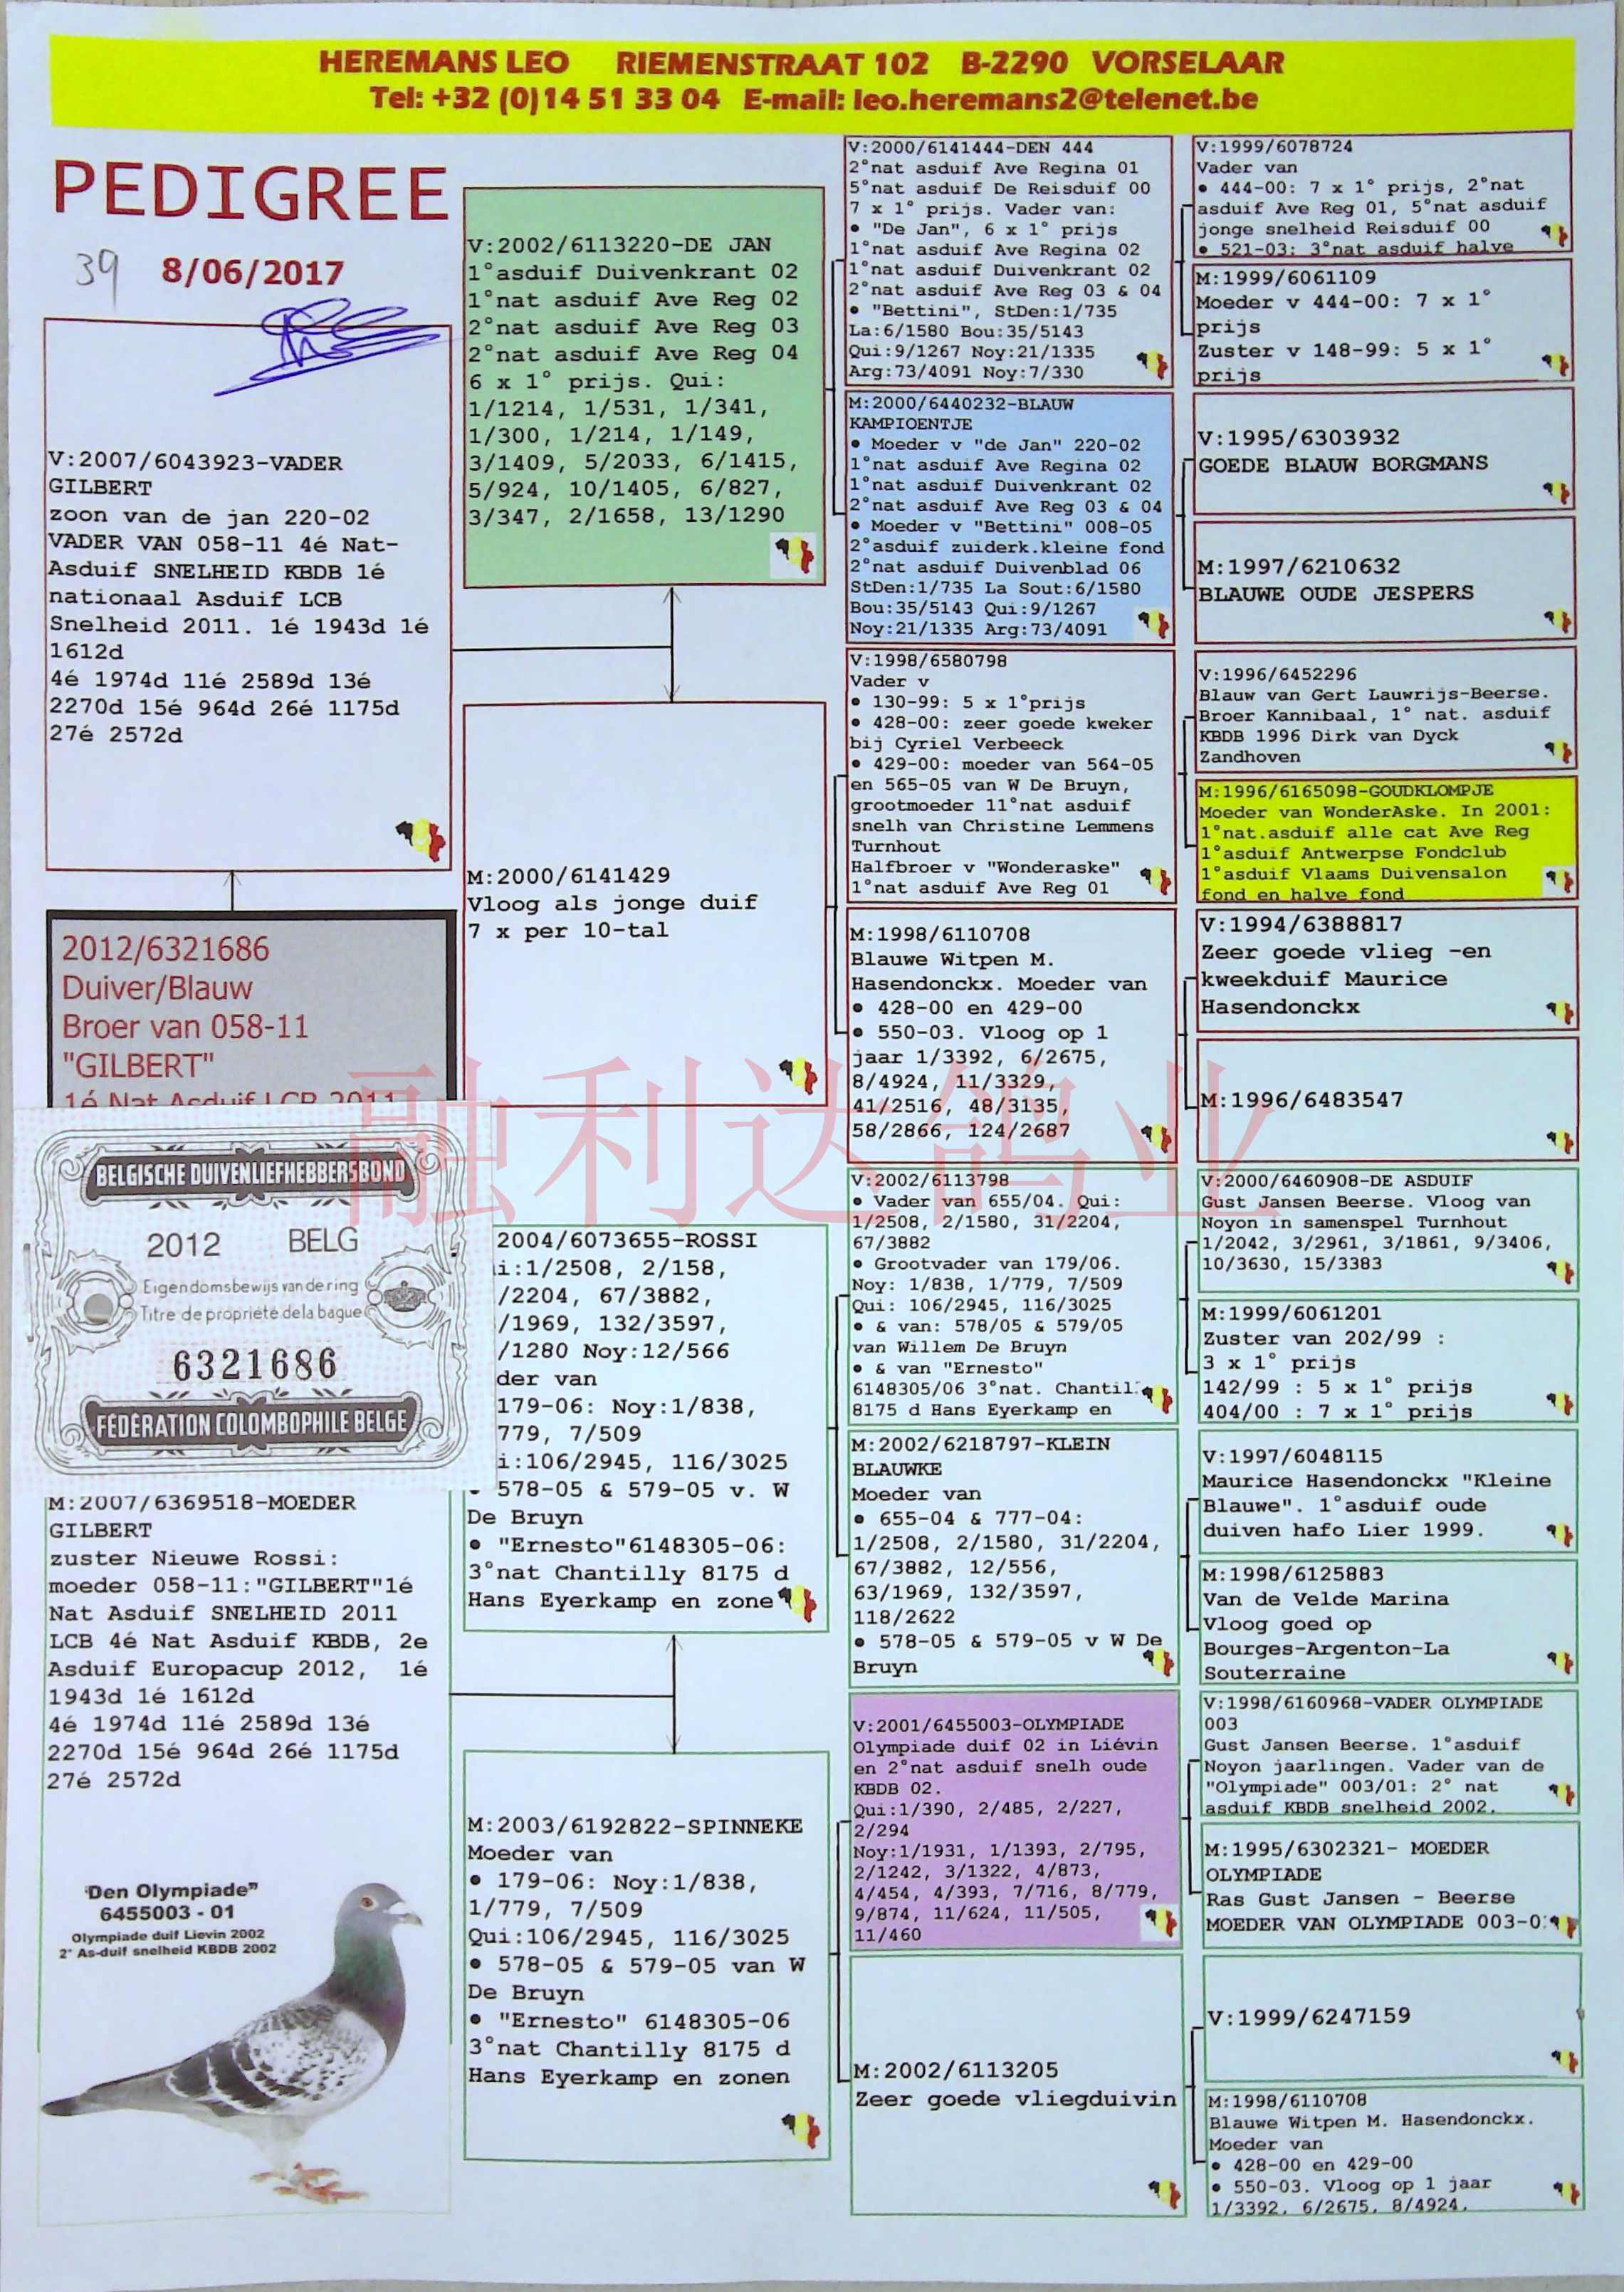 HEREMANS LEO RIEMENSTRAAT 102 B-2290 VORSELAAR
Tel: +32 (0)14 51 33 04 E-mail: leo.heremans2@telenet.be
PEDIGREE
39
8/06/2017
V:2007/6043923-VADER
GILBERT
zoon van de jan 220-02
VADER VAN 058-11 4é Nat-
Asduif SNELHEID KBDB 1é
nationaal Asduif LCB
Snelheid 2011. 1é 1943d 1é
1612d
4é 1974d 11é 2589d 13é
2270d 15é 964d 26é 1175d
27é 2572d
2012/6321686
Duiver/Blauw
Broer van 058-11
"GILBERT"
1é Nat Asduif LCB 2011
BELGISCHE DUIVENLIEFHEBBERSBOND
2012 BELG
Eigendomsbewijs van de ring
Titre de propriété de la bague
6321686
FÉDÉRATION COLOMBOPHILE BELGE
M:2007/6369518-MOEDER
GILBERT
zuster Nieuwe Rossi:
moeder 058-11:"GILBERT"1é
Nat Asduif SNELHEID 2011
LCB 4é Nat Asduif KBDB, 2e
Asduif Europacup 2012, 1é
1943d 1é 1612d
4é 1974d 11é 2589d 13é
2270d 15é 964d 26é 1175d
27é 2572d
"Den Olympiade"
6455003 - 01
Olympiade duif Lievin 2002
2° As-duif snelheid KBDB 2002
V:2002/6113220-DE JAN
1°asduif Duivenkrant 02
1°nat asduif Ave Reg 02
2°nat asduif Ave Reg 03
2°nat asduif Ave Reg 04
6 x 1° prijs. Qui:
1/1214, 1/531, 1/341,
1/300, 1/214, 1/149,
3/1409, 5/2033, 6/1415,
5/924, 10/1405, 6/827,
3/347, 2/1658, 13/1290
M:2000/6141429
Vloog als jonge duif
7 x per 10-tal
2004/6073655-ROSSI
i:1/2508, 2/158,
/2204, 67/3882,
/1969, 132/3597,
/1280 Noy:12/566
der van
179-06: Noy:1/838,
779, 7/509
i:106/2945, 116/3025
578-05 & 579-05 v. W
De Bruyn
• "Ernesto"6148305-06:
3°nat Chantilly 8175 d
Hans Eyerkamp en zone
M:2003/6192822-SPINNEKE
Moeder van
• 179-06: Noy:1/838,
1/779, 7/509
Qui:106/2945, 116/3025
• 578-05 & 579-05 van W
De Bruyn
• "Ernesto" 6148305-06
3°nat Chantilly 8175 d
Hans Eyerkamp en zonen
V:2000/6141444-DEN 444
2°nat asduif Ave Regina 01
5°nat asduif De Reisduif 00
7 x 1° prijs. Vader van:
• "De Jan", 6 x 1° prijs
1°nat asduif Ave Regina 02
1°nat asduif Duivenkrant 02
2°nat asduif Ave Reg 03 & 04
• "Bettini", StDen:1/735
La:6/1580 Bou:35/5143
Qui:9/1267 Noy:21/1335
Arg:73/4091 Noy:7/330
M:2000/6440232-BLAUW
KAMPIOENTJE
• Moeder v "de Jan" 220-02
1°nat asduif Ave Regina 02
1°nat asduif Duivenkrant 02
2°nat asduif Ave Reg 03 & 04
• Moeder v "Bettini" 008-05
2°asduif zuiderk.kleine fond
2°nat asduif Duivenblad 06
StDen:1/735 La Sout:6/1580
Bou:35/5143 Qui:9/1267
Noy:21/1335 Arg:73/4091
V:1998/6580798
Vader v
• 130-99: 5 x 1°prijs
• 428-00: zeer goede kweker
bij Cyriel Verbeeck
• 429-00: moeder van 564-05
en 565-05 van W De Bruyn,
grootmoeder 11°nat asduif
snelh van Christine Lemmens
Turnhout
Halfbroer v "Wonderaske"
1°nat asduif Ave Reg 01
M:1998/6110708
Blauwe Witpen M.
Hasendonckx. Moeder van
• 428-00 en 429-00
• 550-03. Vloog op 1
jaar 1/3392, 6/2675,
8/4924, 11/3329,
41/2516, 48/3135,
58/2866, 124/2687
V:2002/6113798
• Vader van 655/04. Qui:
1/2508, 2/1580, 31/2204,
67/3882
• Grootvader van 179/06.
Noy: 1/838, 1/779, 7/509
Qui: 106/2945, 116/3025
• & van: 578/05 & 579/05
van Willem De Bruyn
• & van "Ernesto"
6148305/06 3°nat. Chantil
8175 d Hans Eyerkamp en
M:2002/6218797-KLEIN
BLAUWKE
Moeder van
• 655-04 & 777-04:
1/2508, 2/1580, 31/2204,
67/3882, 12/556,
63/1969, 132/3597,
118/2622
• 578-05 & 579-05 v W De
Bruyn
V:2001/6455003-OLYMPIADE
Olympiade duif 02 in Liévin
en 2°nat asduif snelh oude
KBDB 02.
Qui:1/390, 2/485, 2/227,
2/294
Noy:1/1931, 1/1393, 2/795,
2/1242, 3/1322, 4/873,
4/454, 4/393, 7/716, 8/779,
9/874, 11/624, 11/505,
11/460
M:2002/6113205
Zeer goede vliegduivin
V:1999/6078724
Vader van
• 444-00: 7 x 1° prijs, 2°nat
asduif Ave Reg 01, 5°nat asduif
jonge snelheid Reisduif 00
• 521-03: 3°nat asduif halve
M:1999/6061109
Moeder v 444-00: 7 x 1°
prijs
Zuster v 148-99: 5 x 1°
prijs
V:1995/6303932
GOEDE BLAUW BORGMANS
M:1997/6210632
BLAUWE OUDE JESPERS
V:1996/6452296
Blauw van Gert Lauwrijs-Beerse.
Broer Kannibaal, 1° nat. asduif
KBDB 1996 Dirk van Dyck
Zandhoven
M:1996/6165098-GOUDKLOMPJE
Moeder van WonderAske. In 2001:
1°nat.asduif alle cat Ave Reg
1°asduif Antwerpse Fondclub
1°asduif Vlaams Duivensalon
fond en halve fond
V:1994/6388817
Zeer goede vlieg -en
kweekduif Maurice
Hasendonckx
M:1996/6483547
V:2000/6460908-DE ASDUIF
Gust Jansen Beerse. Vloog van
Noyon in samenspel Turnhout
1/2042, 3/2961, 3/1861, 9/3406,
10/3630, 15/3383
M:1999/6061201
Zuster van 202/99 :
3 x 1° prijs
142/99 : 5 x 1° prijs
404/00 : 7 x 1° prijs
V:1997/6048115
Maurice Hasendonckx "Kleine
Blauwe". 1°asduif oude
duiven hafo Lier 1999.
M:1998/6125883
Van de Velde Marina
Vloog goed op
Bourges-Argenton-La
Souterraine
V:1998/6160968-VADER OLYMPIADE
003
Gust Jansen Beerse. 1°asduif
Noyon jaarlingen. Vader van de
"Olympiade" 003/01: 2° nat
asduif KBDB snelheid 2002.
M:1995/6302321- MOEDER
OLYMPIADE
Ras Gust Jansen - Beerse
MOEDER VAN OLYMPIADE 003-0
V:1999/6247159
M:1998/6110708
Blauwe Witpen M. Hasendonckx.
Moeder van
• 428-00 en 429-00
• 550-03. Vloog op 1 jaar
1/3392, 6/2675, 8/4924,
融利达鸽业